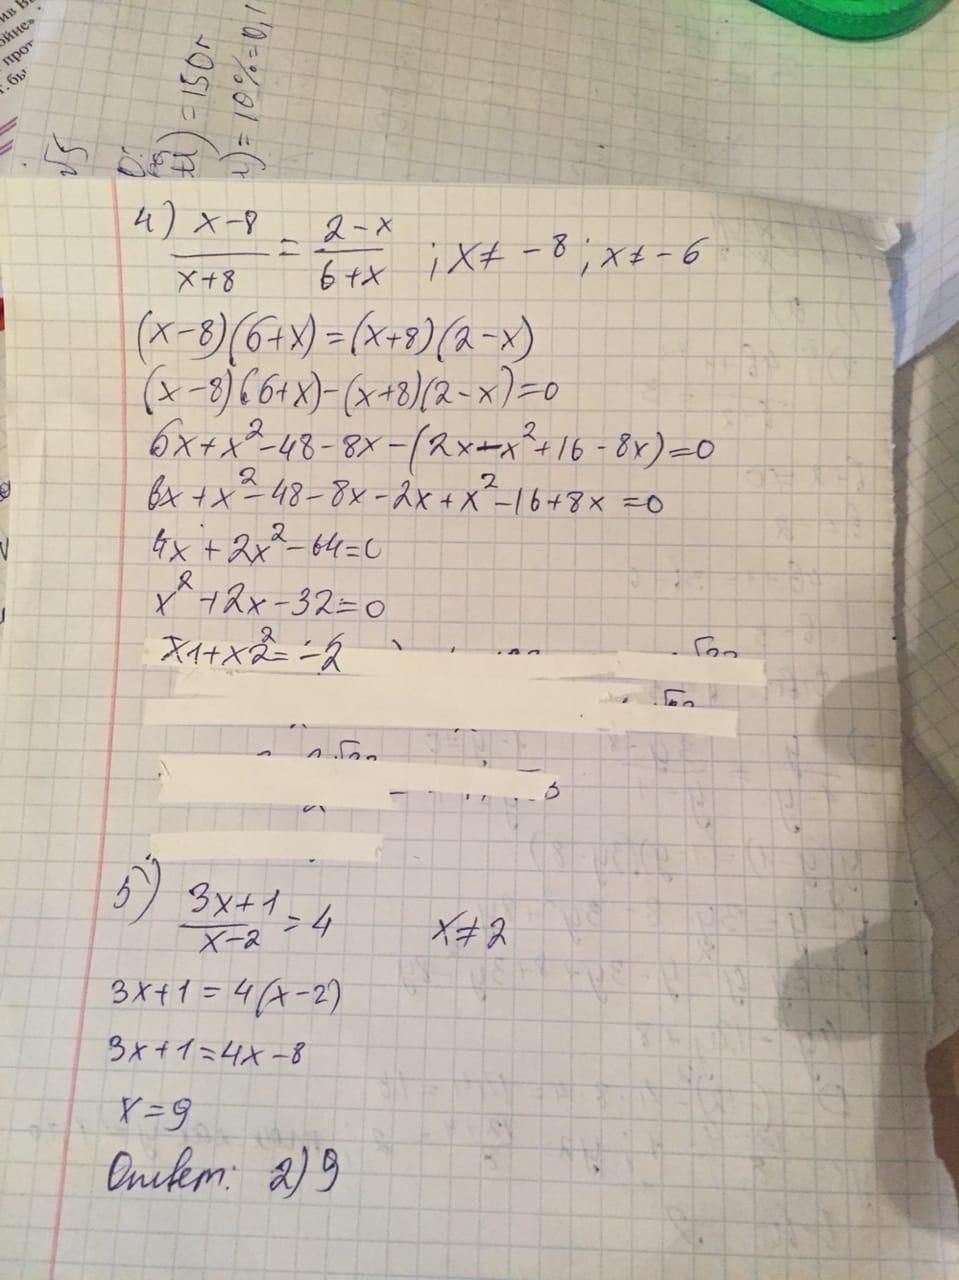 √5
) = 150г
) = 10% = 0,1
4) x-8/x+8 = 2-x/6+x ; x≠ -8 ; x≠ -6
(x-8)(6+x)=(x+8)(2-x)
(x-8)(6+x)-(x+8)(2-x)=0
6x+x²-48-8x-(2x-x²+16-8x)=0
6x+x²-48-8x-2x+x²-16+8x=0
4x+2x²-64=0
x²+2x-32=0
x1+x2²=-2
5) 3x+1/x-2 = 4 x≠2
3x+1=4(x-2)
3x+1=4x-8
x=9
Ответ: 2) 9